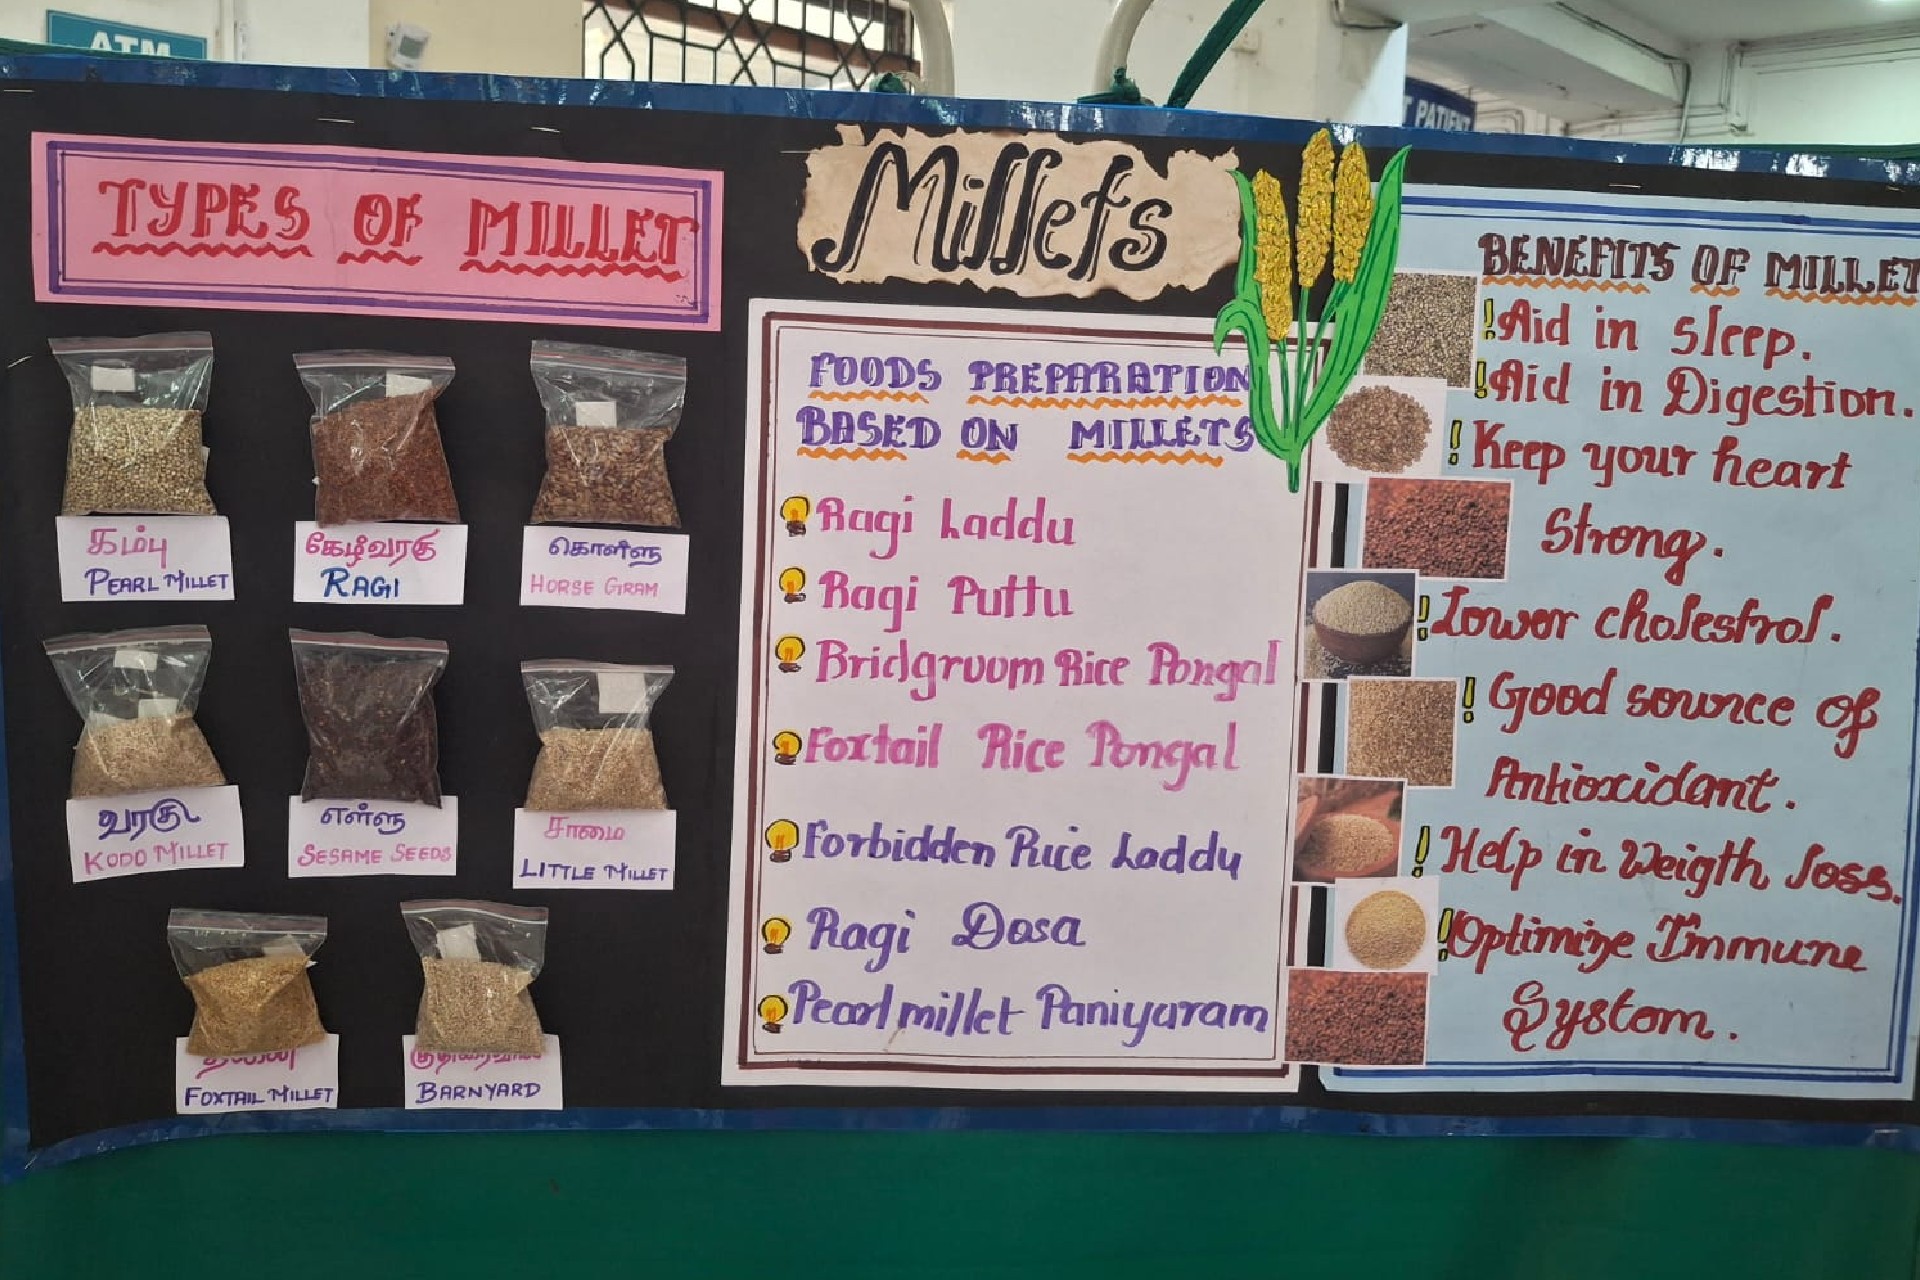 ATM
T PATIENT
TYPES OF MILLET
கம்பு
PEARL MILLET
கேழ்வரகு
RAGI
கொள்ளு
HORSE GRAM
வரகு
KODO MILLET
எள்ளு
SESAME SEEDS
சாமை
LITTLE MILLET
FOXTAIL MILLET
BARNYARD
Millets
FOODS PREPARATION
BASED ON MILLETS
Ragi Laddu
Ragi Puttu
Bridgruom Rice Pongal
Foxtail Rice Pongal
Forbidden Rice Laddu
Ragi Dosa
Pearl millet Paniyaram
BENEFITS OF MILLET
!Aid in sleep.
!Aid in Digestion.
!Keep your heart
Strong.
!Lower cholestrol.
!Good source of
Antioxidant.
!Help in Weigth loss.
!Optimize Immune
System.